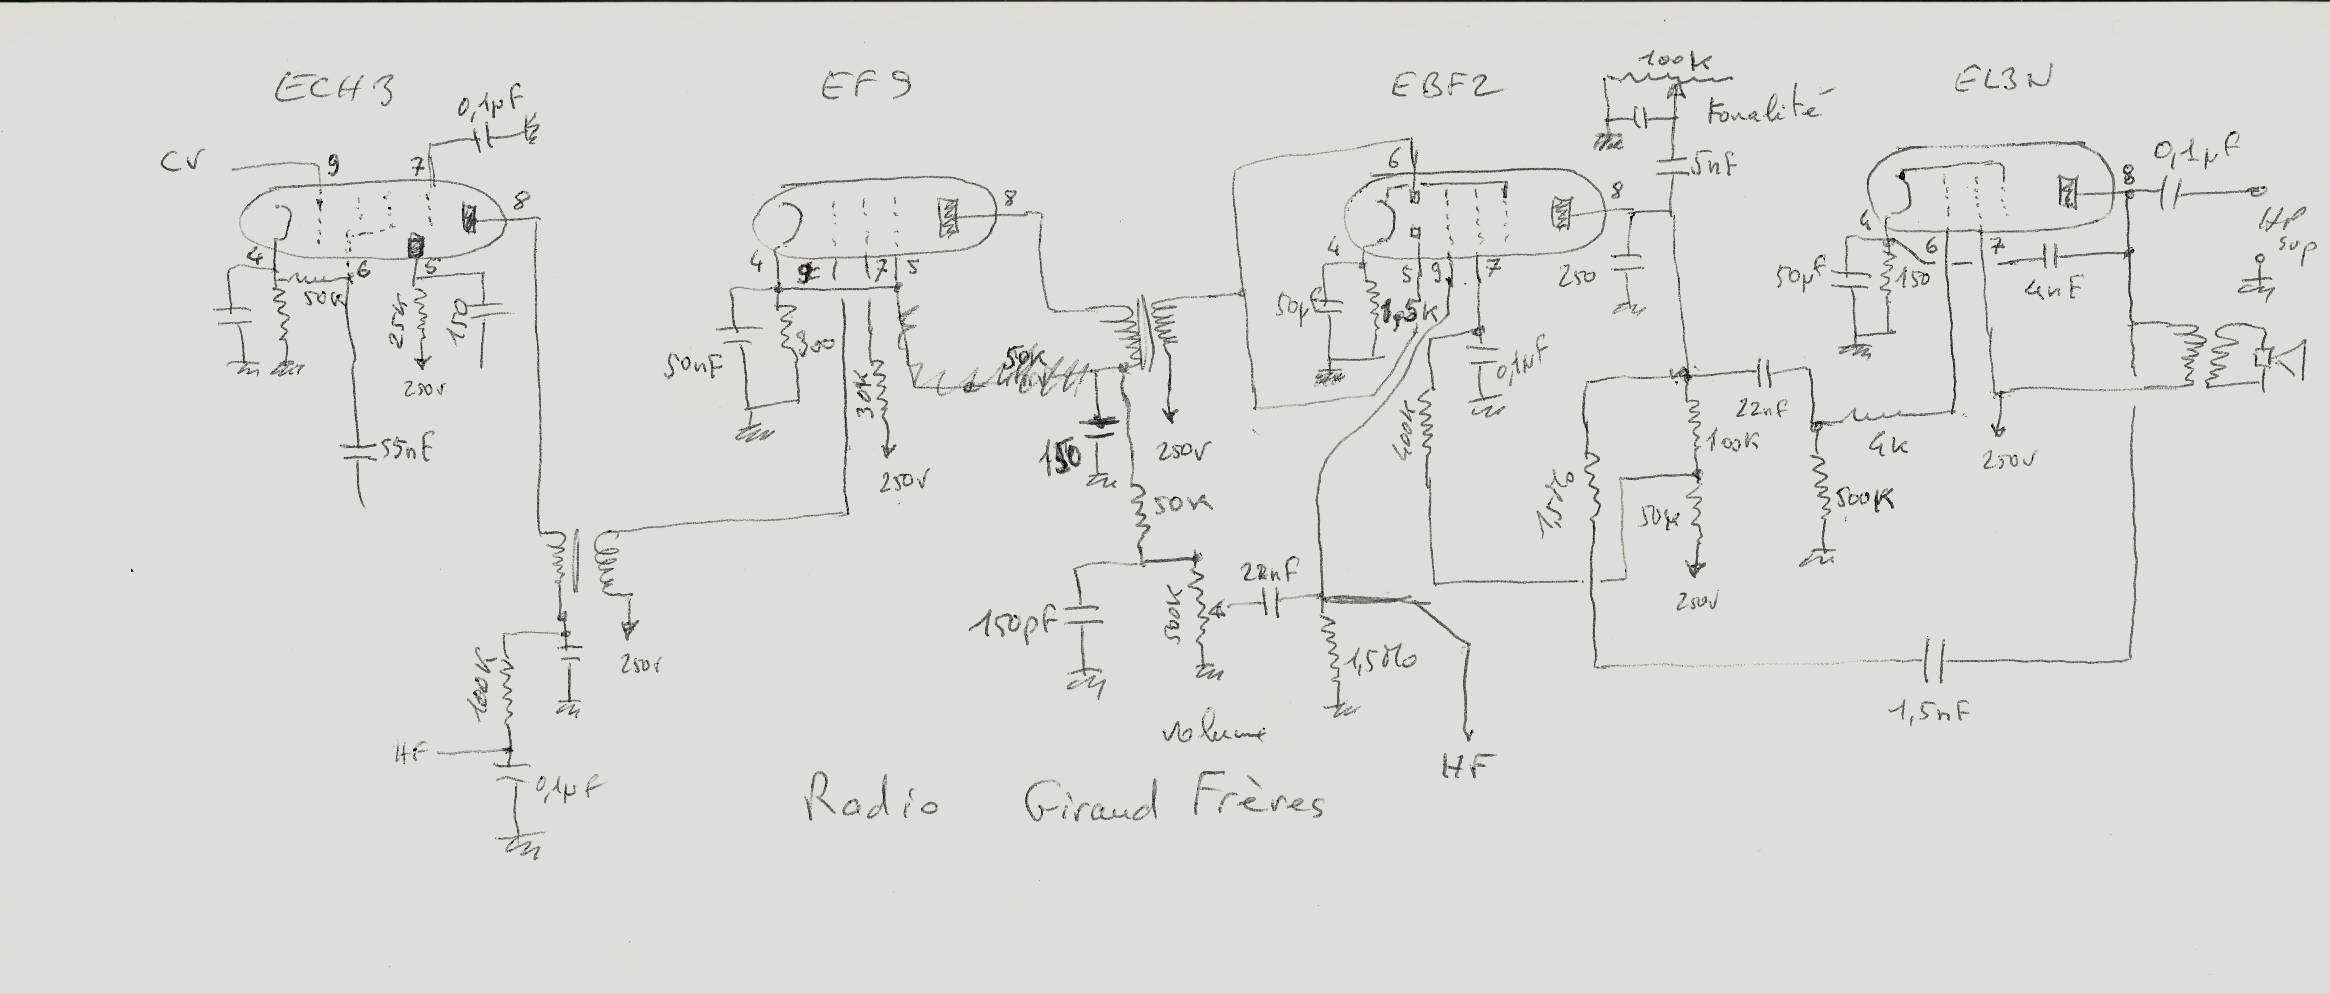 ECH3
EF9
EBF2
EL3N
100K
Tonalité
0,1µF
CV
9
7
8
4
6
5
50K
25K
150
250v
55nF
100K
HF
0,1µF
250v
4
7
5
8
50nF
300
30K
250v
50K
150
250v
50K
150pF
500K
22nF
volume
6
8
4
5
9
7
50µF
1,5K
0,1µF
400K
1,5MΩ
HF
5nF
250
22nF
100K
50K
250v
4K
500K
1,5nF
8
4
6
7
0,1µF
HP
sup
50µF
150
4nF
250v
Radio Giraud Frères